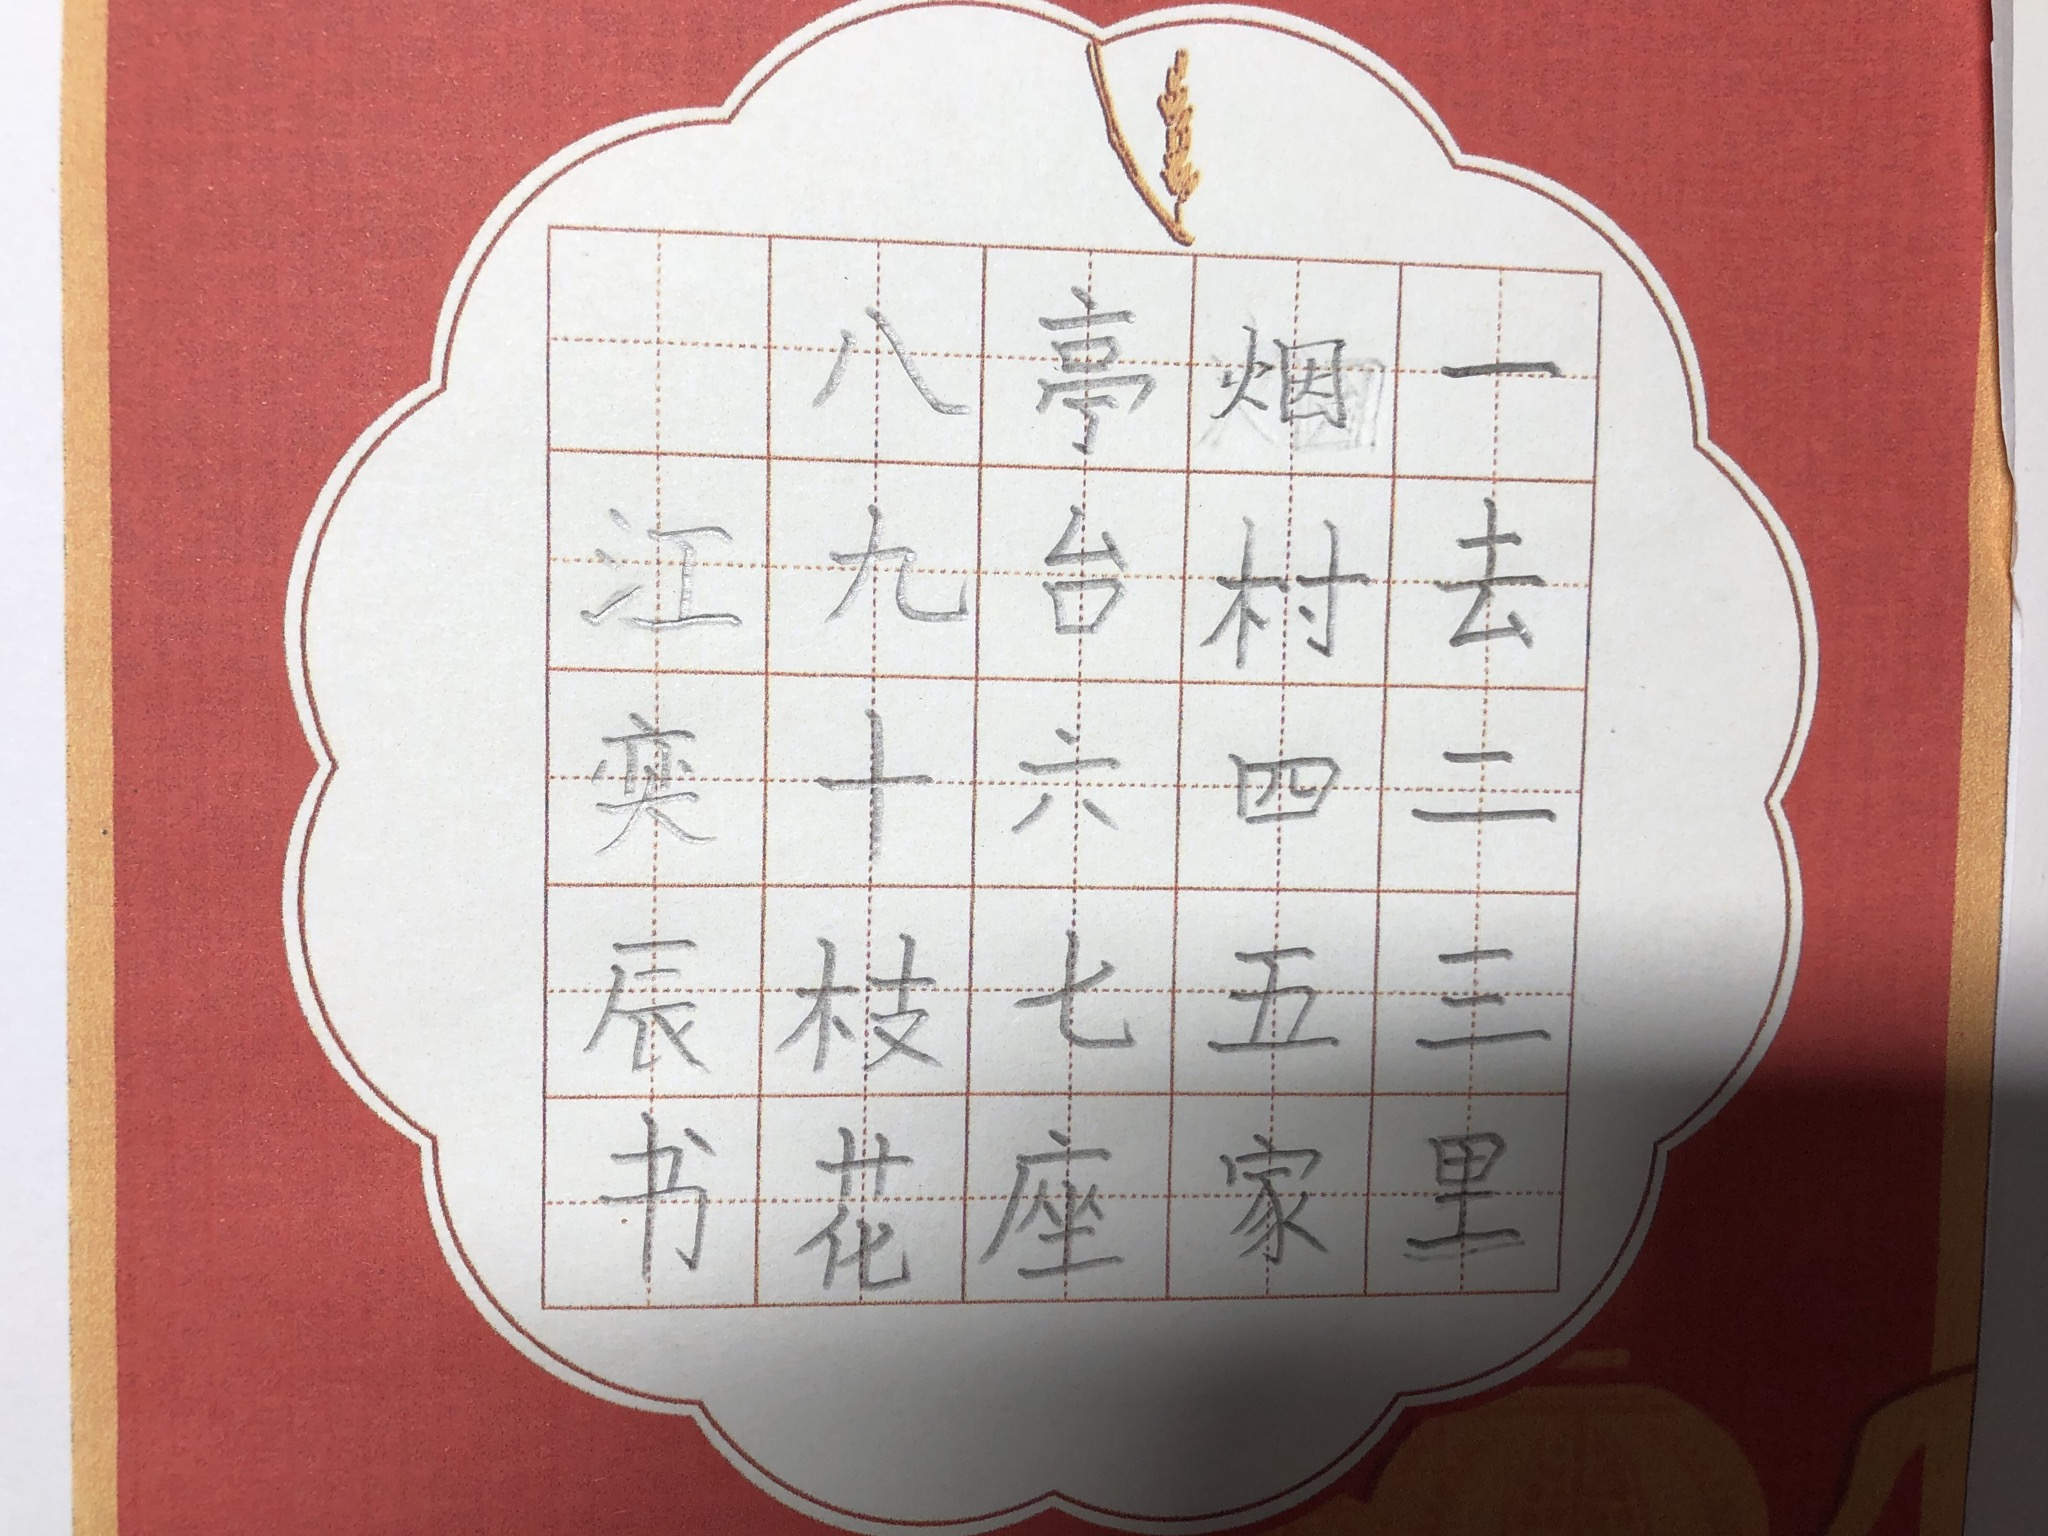 一去二三里
烟村四五家
亭台六七座
八九十枝花
江奕辰书